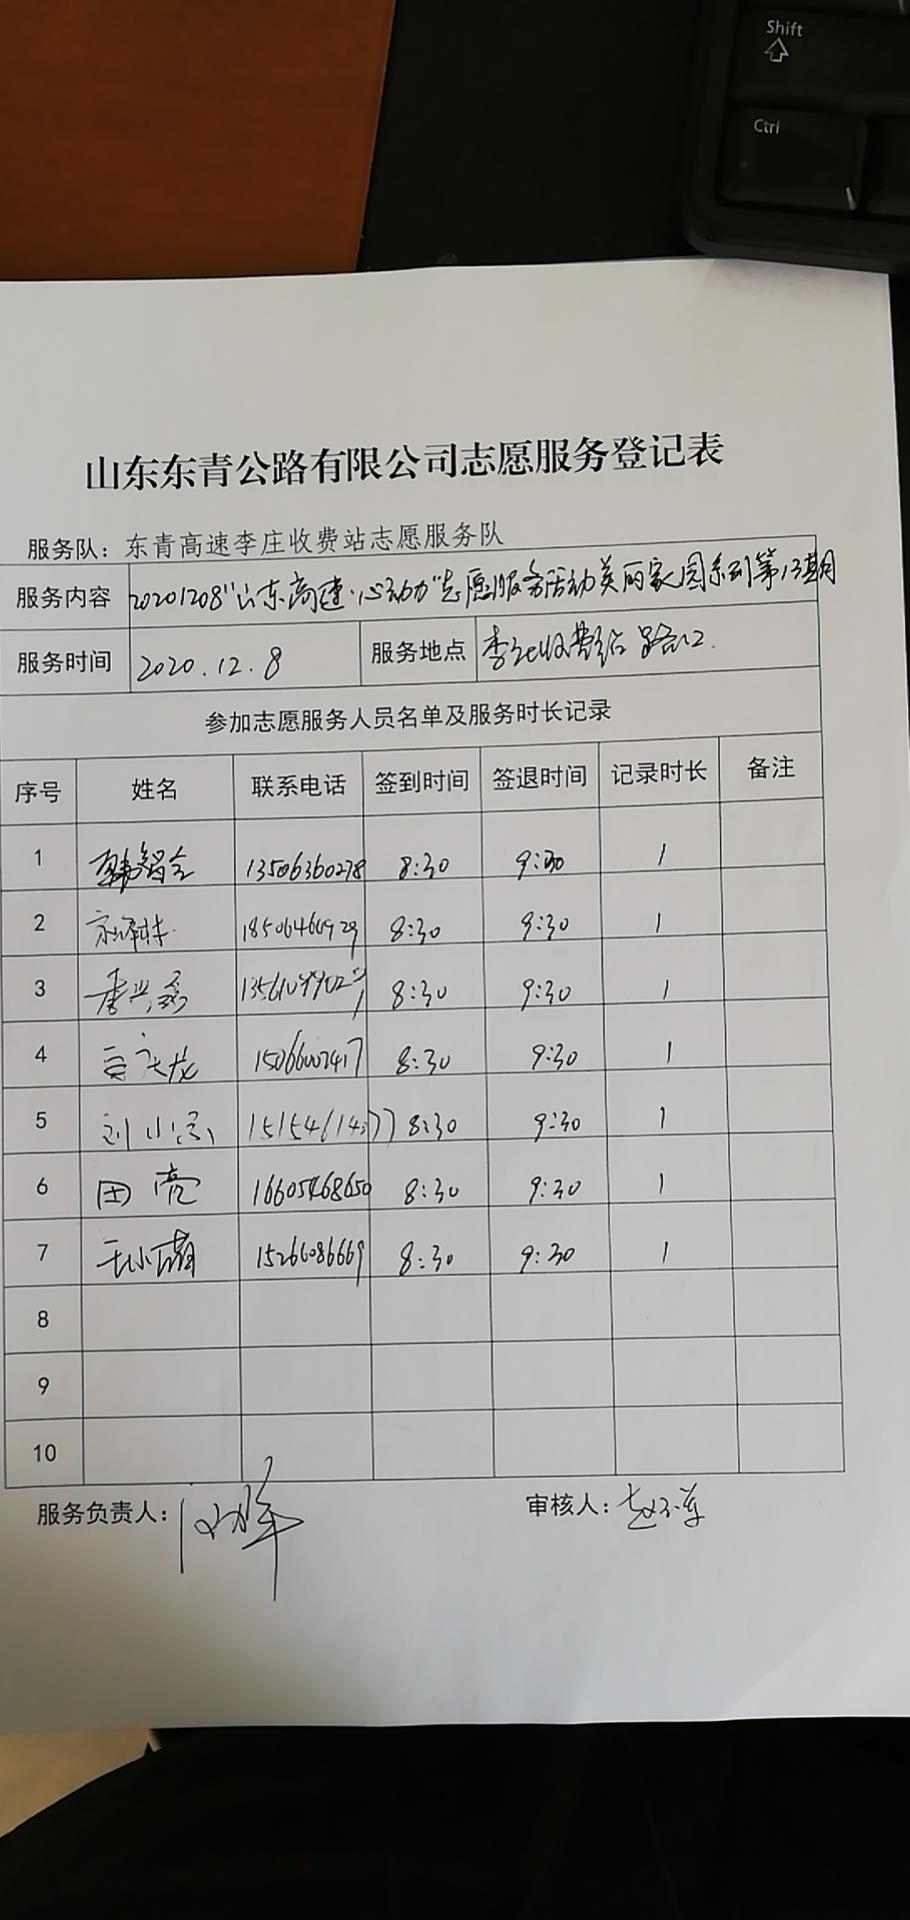 Shift
Ctrl
山东东青公路有限公司志愿服务登记表
服务队：东青高速李庄收费站志愿服务队
服务内容 20201208"山东高速·心动力"志愿服务活动美丽家园系列第13期
服务时间 2020.12.8 服务地点 李庄收费站路口.
参加志愿服务人员名单及服务时长记录
序号 姓名 联系电话 签到时间 签退时间 记录时长 备注
1 韩智全 13506360278 8:30 9:30 1
2 8:30 9:30 1
3 8:30 9:30 1
4 8:30 9:30 1
5 8:30 9:30 1
6 田亮 16605468650 8:30 9:30 1
7 15266086669 8:30 9:30 1
8
9
10
服务负责人： 审核人：